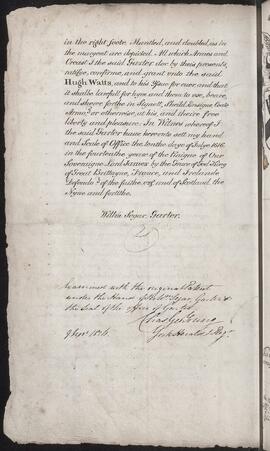 in the right foote. Mantled, and doubled, as in
the margent are depicted. All which Armes and
Creast I the said Garter doe by theis presents,
ratifie, confirme, and grant vnto the said
Hugh Watts, and to his Yssue for euer, and that
it shalbe lawfull for hym and them to vse, beare,
and shewe forthe in Signett, Sheild, Ensigne, Coate
Armor or otherwise, at his, and theire free
liberty and pleasure. In Witnes whereof I
the said Garter haue herevnto sett my hand
and Seale of Office the tenthe daye of Julye 1616
in the fourteenthe yeare of the Raigne of Our
Soveraigne Lord James by the Grace of God King
of Great Brittayne, France, and Irelande
Defender of the faithe, &c; and of Scotland the
Nyne and fortithe.
Willm Segar. Garter.
Examined with the original Patent
under the Hand of Sr. Wm. Segar, Garter &
the Seal of the Office of Garter
Chas Geo Young
York Herald & Regr.
9 Novr. 1826.